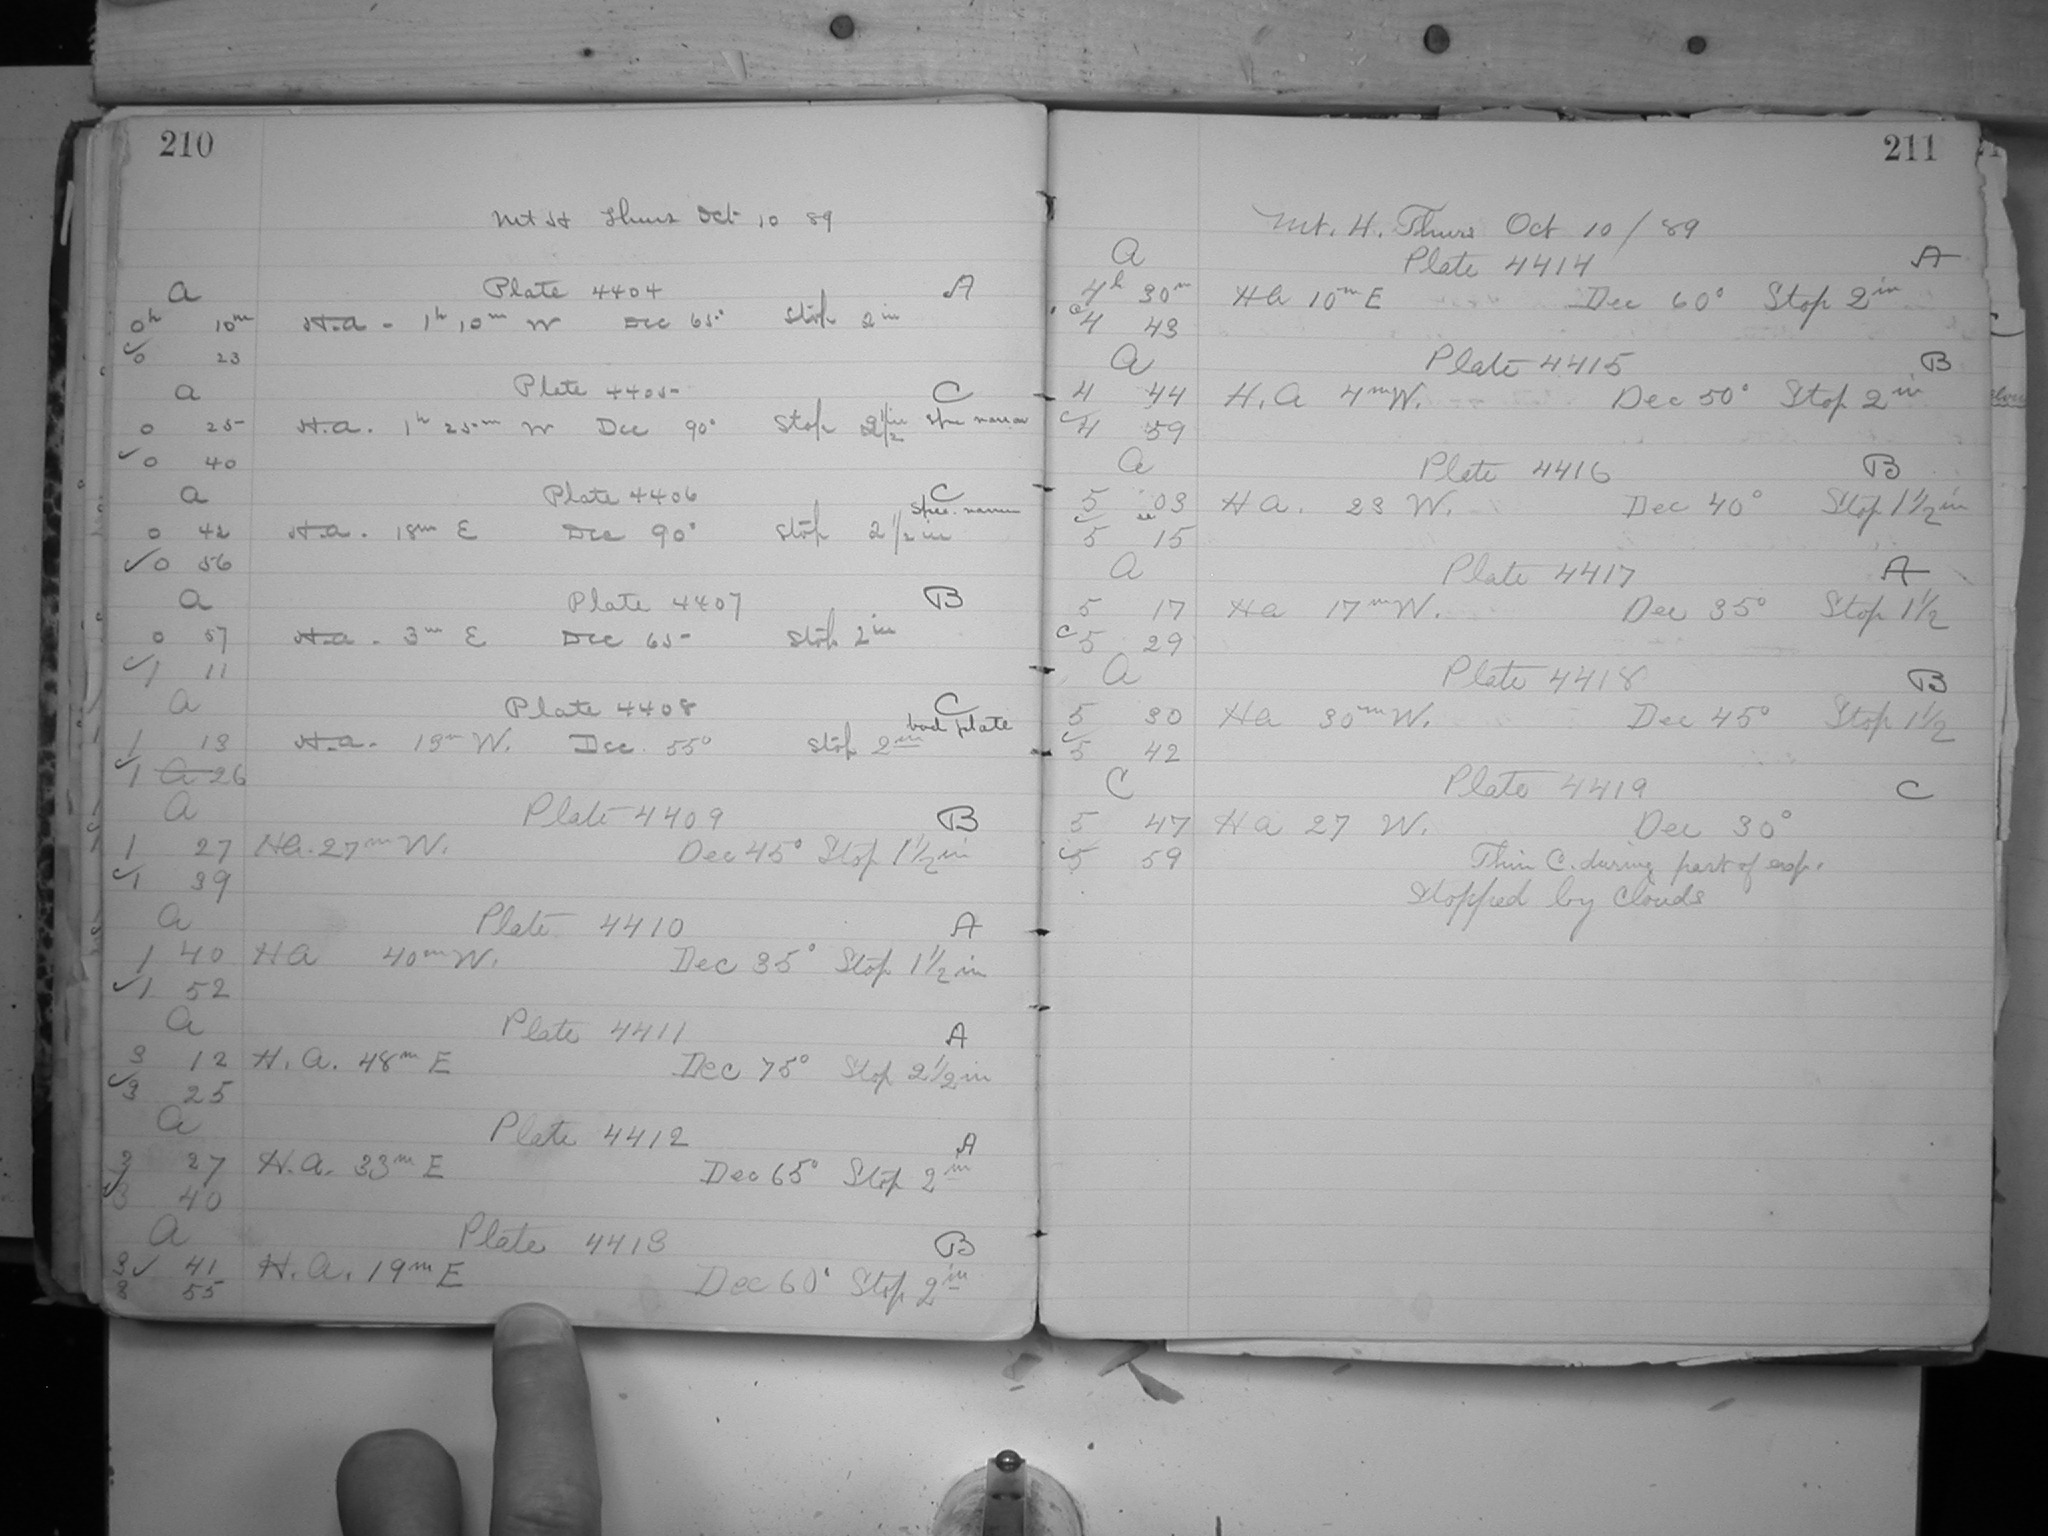 210
Mt H Thurs Oct 10 89
a Plate 4404 A
0h 10m H.a - 1h 10m W Dec 65° Stop 2in
✓0 23
a Plate 4405 C
0 25 H.a. 1h 25m W Dec 90° Stop 2 1/2 in Spec narrow
✓0 40
a Plate 4406 C
0 42 H.a. 18m E Dec 90° Stop 2 1/2 in Spec. narrow
✓0 56
a Plate 4407 B
0 57 H.a - 3m E Dec 65 Stop 2in
✓1 11
a Plate 4408 C
bad plate
1 13 H.a. 13m W. Dec. 55° Stop 2in
✓1 26
a Plate 4409 B
1 27 Ha. 27m W. Dec 45° Stop 1 1/2 in
✓1 39
a Plate 4410 A
1 40 HA 40m W. Dec 35° Stop 1 1/2 in
✓1 52
a Plate 4411 A
3 12 H.A. 48m E Dec 75° Stop 2 1/2 in
✓3 25
a Plate 4412 A
3 27 H.A. 33m E Dec 65° Stop 2in
✓3 40
a Plate 4413 B
3✓ 41 H.A. 19m E Dec 60° Stop 2in
3 55
211
Mt. H. Thurs Oct 10/89
a Plate 4414 A
4h 30m Ha 10m E Dec 60° Stop 2in
4 43
a Plate 4415 B
4 44 H.A 4m W. Dec 50° Stop 2in
✓4 59
a Plate 4416 B
5 03 HA. 23 W. Dec 40° Stop 1 1/2 in
✓5 15
a Plate 4417 A
5 17 Ha 17m W. Dec 35° Stop 1 1/2
✓5 29
a Plate 4418 B
5 30 Ha 30m W. Dec 45° Stop 1 1/2
✓5 42
C Plate 4419 C
5 47 Ha 27 W. Dec 30°
✓5 59 Thin C. during part of exp.
Stopped by Clouds